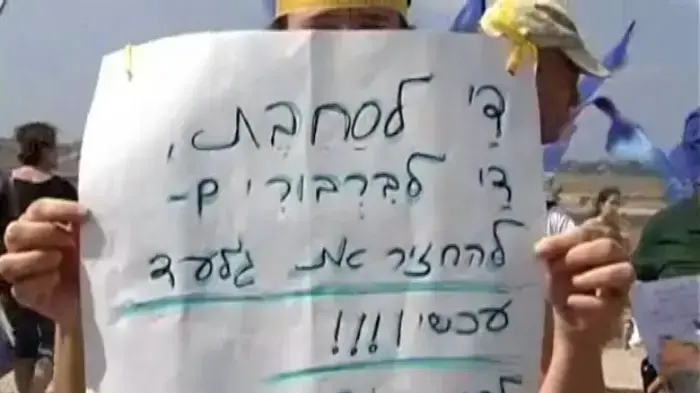 דַי לסַחֶבֶת,
דַי לבִּרְבּוּרִים-
להחזיר את גלעד
עכשיו!!!!